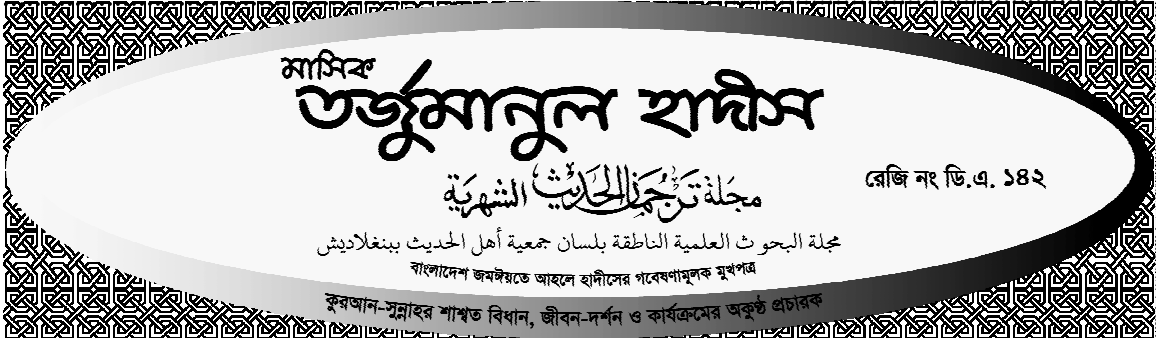 মাসিক
তর্জুমানুল হাদীস
مجلة ترجمان الحديث الشهرية
রেজি নং ডি.এ. ১৪২
مجلة البحوث العلمية الناطقة بلسان جمعية أهل الحديث ببنغلاديش
বাংলাদেশ জমঈয়তে আহলে হাদীসের গবেষণামূলক মুখপত্র
কুরআন-সুন্নাহর শাশ্বত বিধান, জীবন-দর্শন ও কার্যক্রমের অকুণ্ঠ প্রচারক